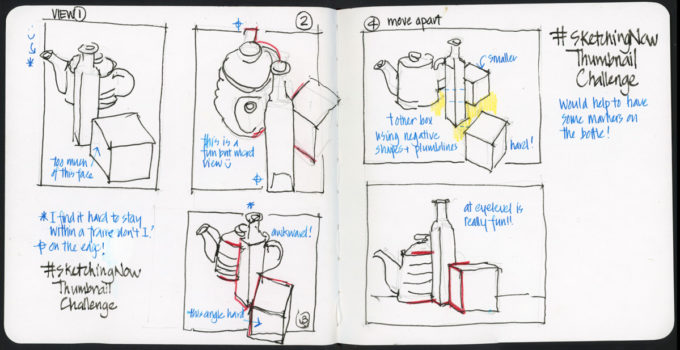 VIEW ①
too much
of this face
* I find it hard to stay
within a frame don't I!
on the edge!
#sketchingNow
Thumbnail
Challenge
②
this is a
fun but weird
view
awkward!
this angle hard
③
④ move apart
smaller
1 other box
using negative
shapes + plumblines
hard!
at eyelevel is
really fun!!
#sketchingNow
Thumbnail
Challenge
Would help to have
some markers on
the bottle!